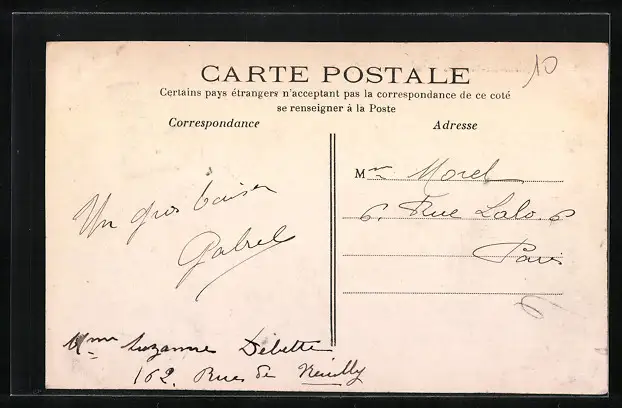 10
CARTE POSTALE
Certains pays étrangers n'acceptant pas la correspondance de ce coté
se renseigner à la Poste
Correspondance
Adresse
Un gros baiser
Gabriel
Mme Suzanne Debette
162. Rue de Neuilly
Mme Morel
6. Rue Lalo. 6
Paris